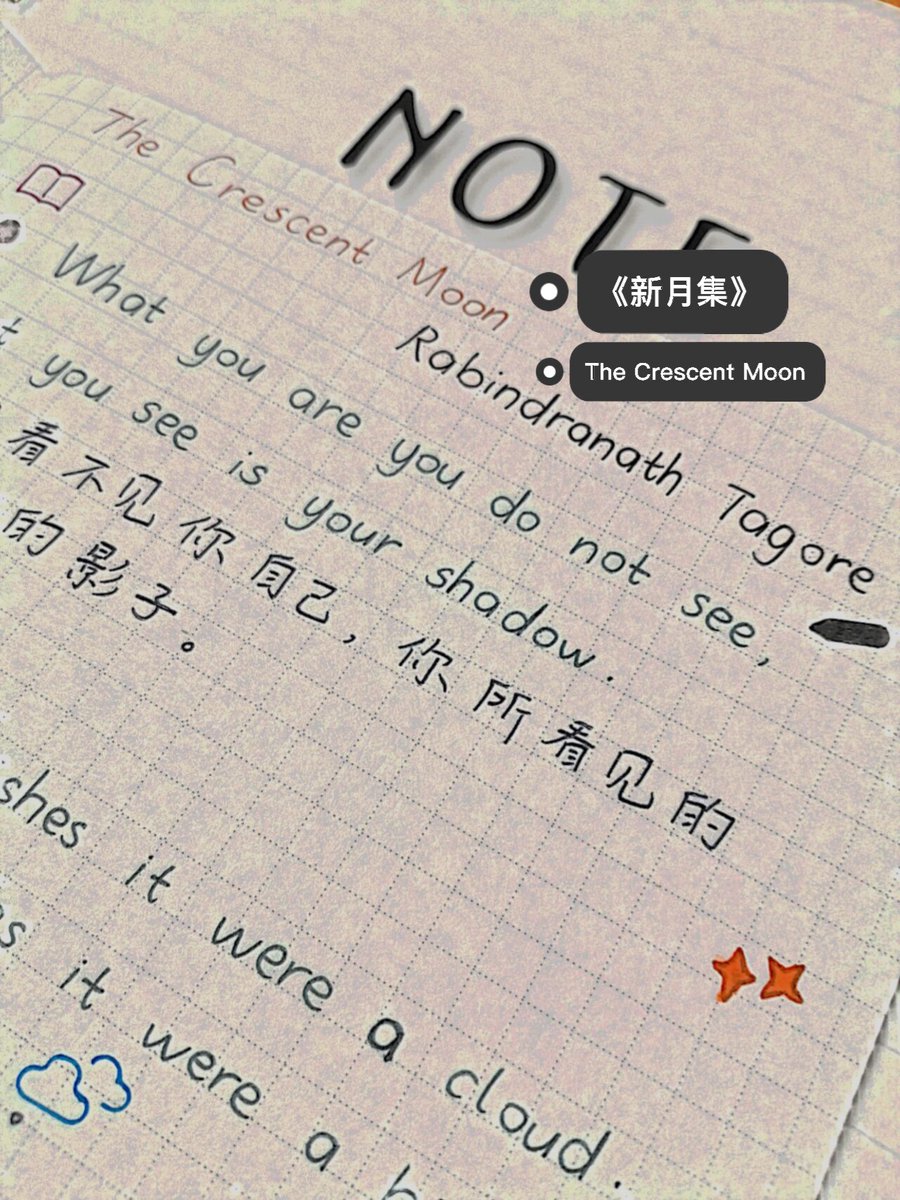 NOTE
The Crescent Moon
《新月集》
The Crescent Moon
Rabindranath Tagore
What you are you do not see,
you see is your shadow.
看不见你自己，你所看见的
的影子。
it were a cloud.
it were a